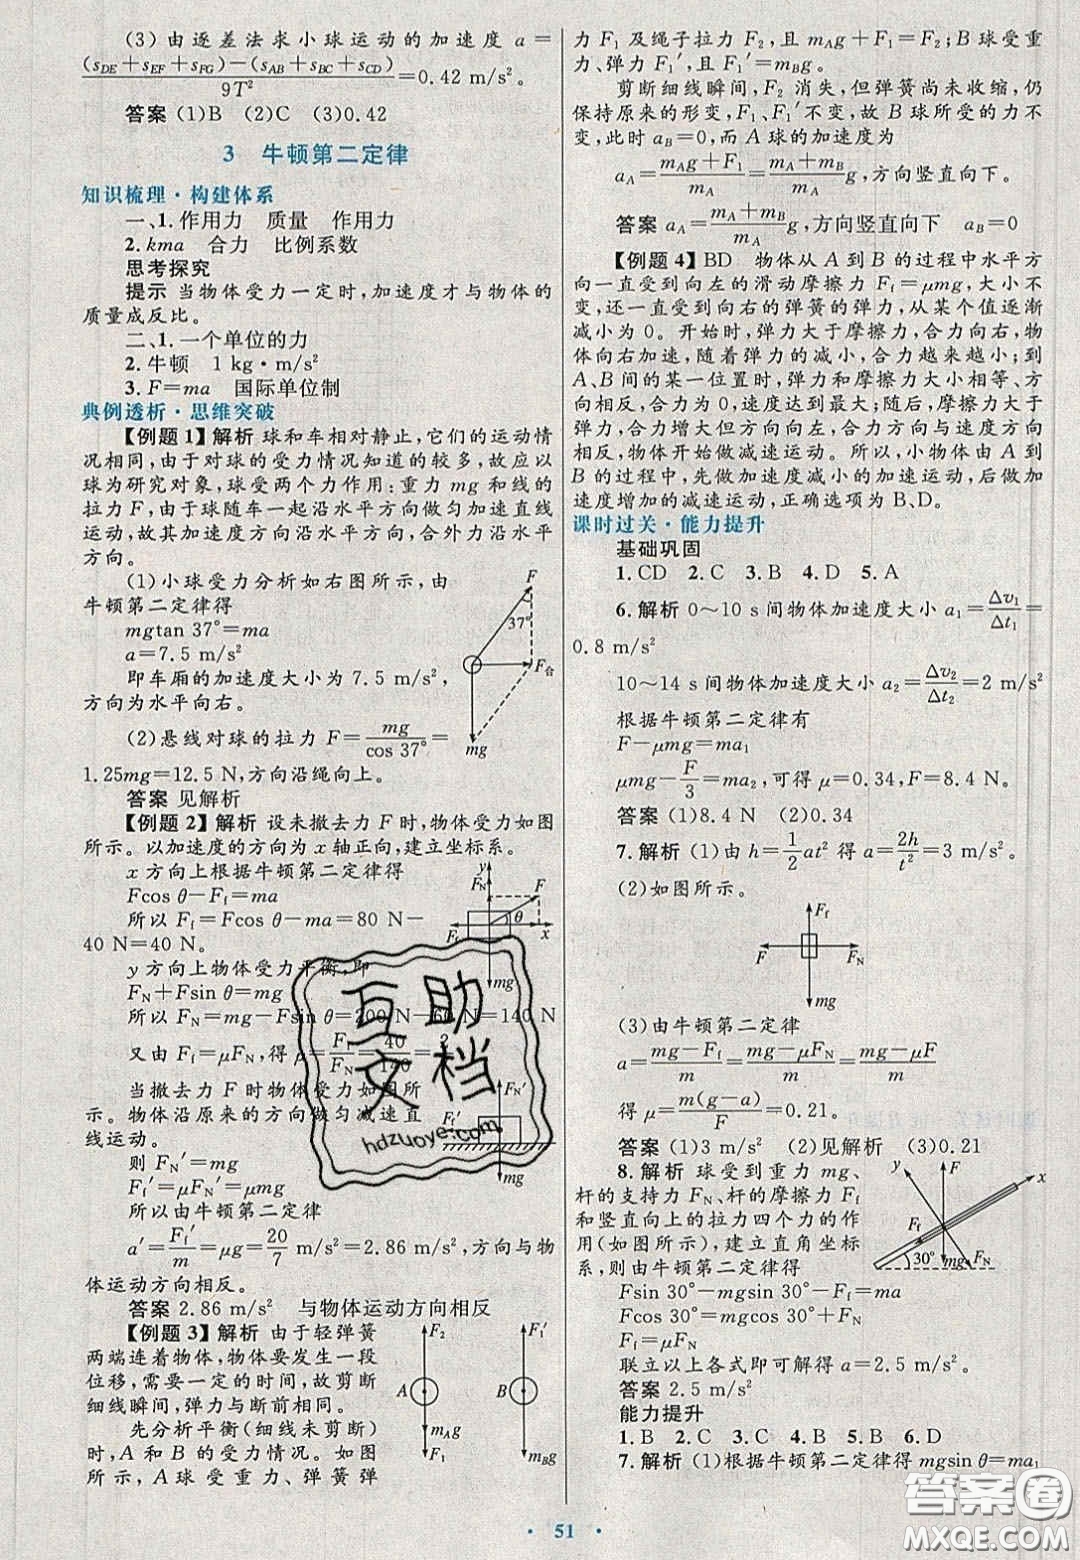 (3)由逐差法求小球运动的加速度 a=
(s_DE+s_EF+s_FG)-(s_AB+s_BC+s_CD)/9T²=0.42 m/s².
答案 (1)B (2)C (3)0.42
3 牛顿第二定律
知识梳理·构建体系
一、1.作用力 质量 作用力
2.kma 合力 比例系数
思考探究
提示 当物体受力一定时,加速度才与物体的
质量成反比。
二、1.一个单位的力
2.牛顿 1 kg·m/s²
3.F=ma 国际单位制
典例透析·思维突破
【例题1】解析 球和车相对静止,它们的运动情
况相同,由于对球的受力情况知道的较多,故应以
球为研究对象,球受两个力作用:重力 mg 和线的
拉力 F,由于球随车一起沿水平方向做匀加速直线
运动,故其加速度方向沿水平方向,合外力沿水平
方向。
(1)小球受力分析如右图所示,由
牛顿第二定律得
mgtan 37°=ma
a=7.5 m/s²
即车厢的加速度大小为 7.5 m/s²,
方向为水平向右。
F
37°
F合
mg
(2)悬线对球的拉力 F=mg/cos 37°=
1.25mg=12.5 N,方向沿绳向上。
答案 见解析
【例题2】解析 设未撤去力 F 时,物体受力如图
所示。以加速度的方向为 x 轴正向,建立坐标系。
x 方向上根据牛顿第二定律得
Fcos θ-Ff=ma
所以 Ff=Fcos θ-ma=80 N-
40 N=40 N。
y
FN
F
θ
Ff
x
mg
y 方向上物体受力平衡,即
FN+Fsin θ=mg
所以 FN=mg-Fsin θ=200 N-60 N=140 N
又由 Ff=μFN,得 μ=Ff/FN=40/140=2
当撤去力 F 时物体受力如图所
示。物体沿原来的方向做匀减速直
线运动。
则 FN′=mg
Ff′=μFN′=μmg
所以由牛顿第二定律
FN′
Ff′
mg
a′=Ff′/m=μg=20/7 m/s²=2.86 m/s²,方向与物
体运动方向相反。
答案 2.86 m/s² 与物体运动方向相反
【例题3】解析 由于轻弹簧
两端连着物体,物体要发生一段
位移,需要一定的时间,故剪断
细线瞬间,弹力与断前相同。
先分析平衡(细线未剪断)
时,A 和 B 的受力情况。如图
所示,A 球受重力、弹簧弹
F2
A
mAg
F1
F1′
B
mBg
力 F1 及绳子拉力 F2,且 mAg+F1=F2;B 球受重
力、弹力 F1′,且 F1′=mBg。
剪断细线瞬间,F2 消失,但弹簧尚未收缩,仍
保持原来的形变,F1、F1′不变,故 B 球所受的力不
变,此时 aB=0,而 A 球的加速度为
aA=(mAg+F1)/mA=(mA+mB)/mA g,方向竖直向下。
答案 aA=(mA+mB)/mA g,方向竖直向下 aB=0
【例题4】BD 物体从 A 到 B 的过程中水平方
向一直受到向左的滑动摩擦力 Ff=μmg,大小不
变,还一直受到向右的弹簧的弹力,从某个值逐渐
减小为 0。开始时,弹力大于摩擦力,合力向右,物
体向右加速,随着弹力的减小,合力越来越小;到
A、B 间的某一位置时,弹力和摩擦力大小相等、方
向相反,合力为 0,速度达到最大;随后,摩擦力大于
弹力,合力增大但方向向左,合力方向与速度方向
相反,物体开始做减速运动。所以,小物体由 A 到
B 的过程中,先做加速度减小的加速运动,后做加
速度增加的减速运动,正确选项为 B、D。
课时过关·能力提升
基础巩固
1.CD 2.C 3.B 4.D 5.A
6.解析 0~10 s 间物体加速度大小 a1=Δv1/Δt1=
0.8 m/s²
10~14 s 间物体加速度大小 a2=Δv2/Δt2=2 m/s²
根据牛顿第二定律有
F-μmg=ma1
μmg-F/3=ma2,可得 μ=0.34,F=8.4 N。
答案 (1)8.4 N (2)0.34
7.解析 (1)由 h=1/2at² 得 a=2h/t²=3 m/s²。
(2)如图所示。
Ff
F
FN
mg
(3)由牛顿第二定律
a=(mg-Ff)/m=(mg-μFN)/m=(mg-μF)/m
得 μ=m(g-a)/F=0.21。
答案 (1)3 m/s² (2)见解析 (3)0.21
8.解析 球受到重力 mg、
杆的支持力 FN、杆的摩擦力 Ff
和竖直向上的拉力四个力的作
用(如图所示),建立直角坐标
系,则由牛顿第二定律得
y
F
x
Ff
30°
mg
FN
Fsin 30°-mgsin 30°-Ff=ma
Fcos 30°=mgcos 30°+FN
Ff=μFN
联立以上各式即可解得 a=2.5 m/s²。
答案 2.5 m/s²
能力提升
1.B 2.C 3.C 4.B 5.B 6.D
7.解析 (1)根据牛顿第二定律得 mgsin θ=ma1
51
互助
文档
hdzuoye.com
答案圈
MXQE.COM